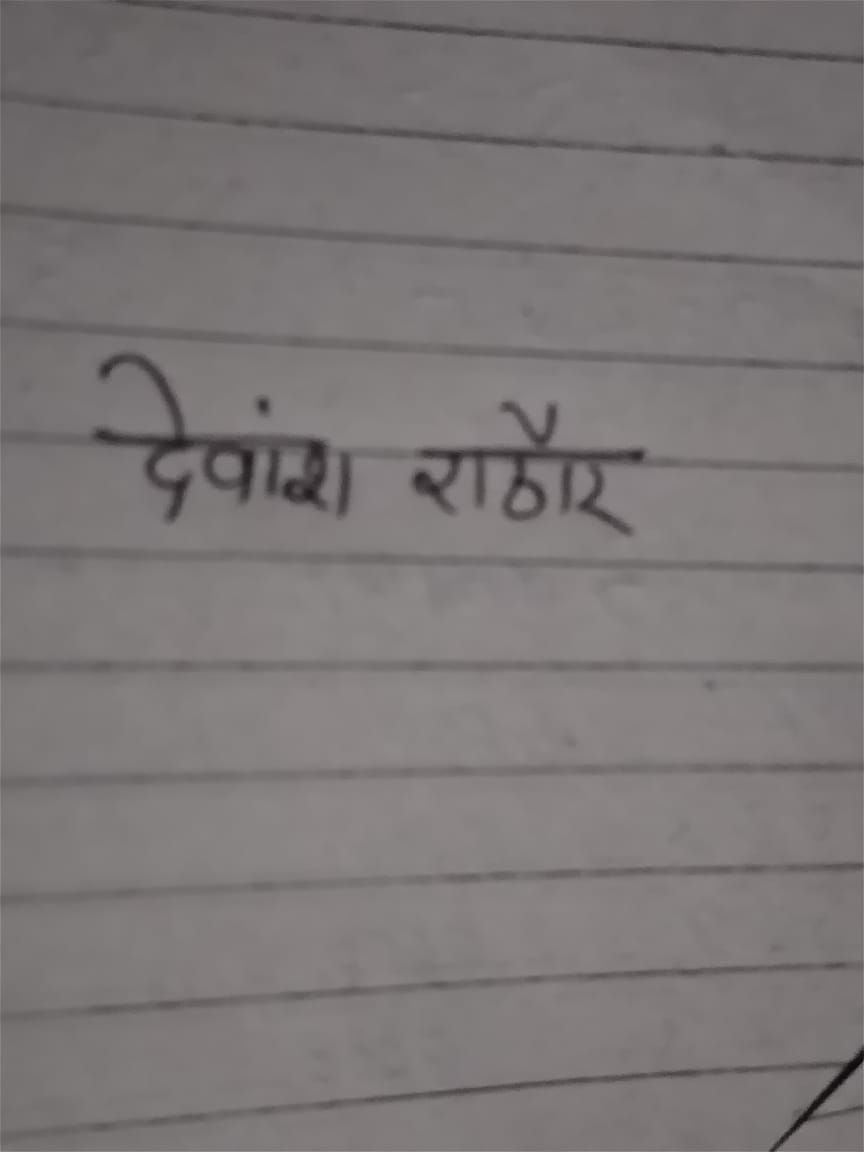 देवांश राठौर